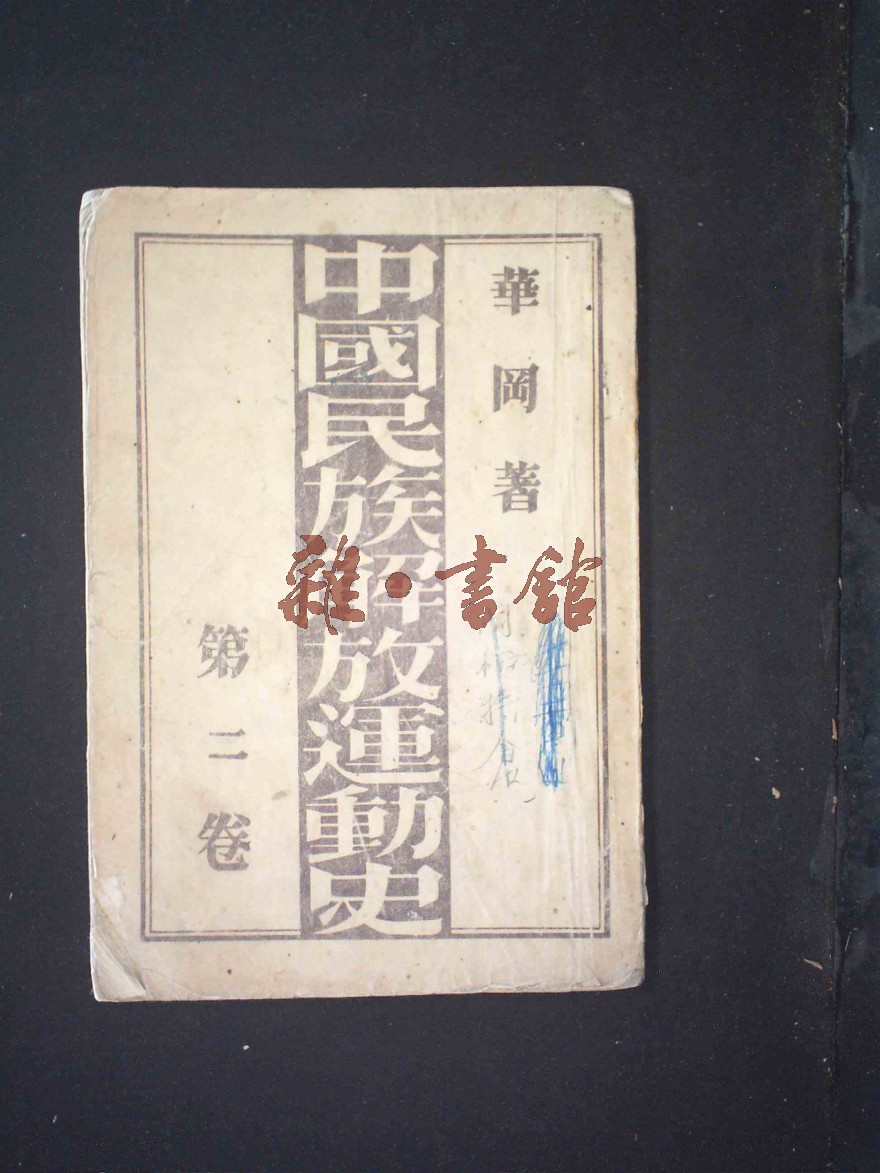 華岡著
中國民族解放運動史
第二卷
雜·書館